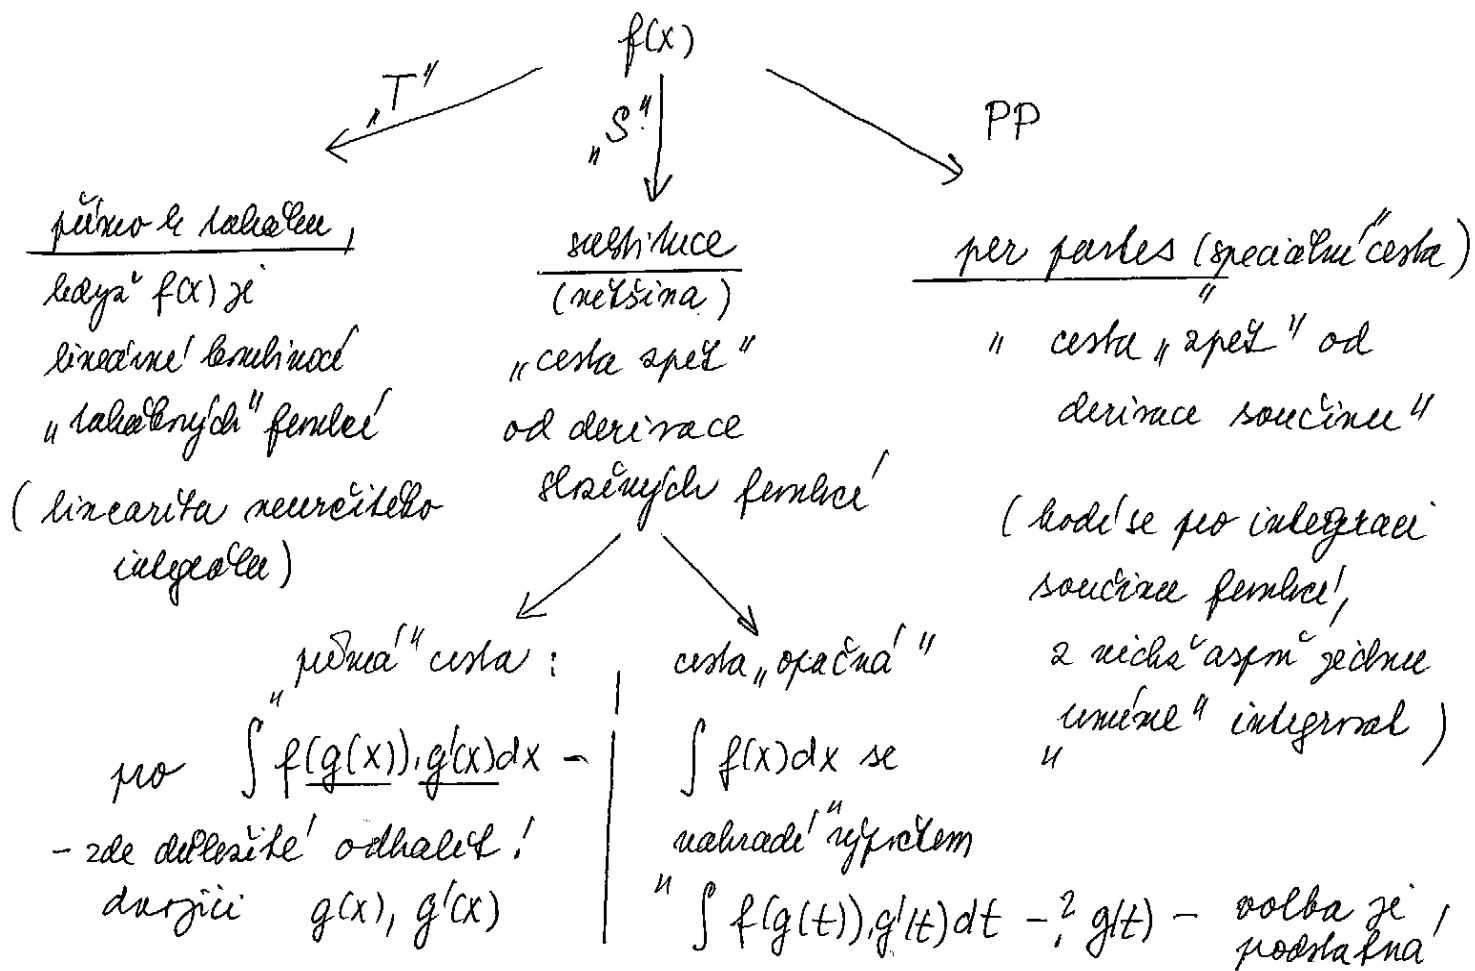 f(x)
„T“
„S“
PP
přímo k tabulkám,
když f(x) je
lineární kombinací
„tabulkových“ funkcí
(linearita neurčitého
integrálu)
substituce
(většina)
„cesta zpět“
od derivace
složených funkcí
per partes (speciální cesta)
„cesta „zpět“ od
derivace součinu“
(hodí se pro integraci
součinu funkcí,
z nichž aspoň jednu
„umíme“ integrovat)
„přímá“ cesta:
pro ∫ f(g(x)).g'(x)dx –
– zde důležité odhalit!
dvojici g(x), g'(x)
cesta „opačná“
∫ f(x)dx se
nahradí „výpočtem“
∫ f(g(t)).g'(t)dt –? g(t) – volba je
podstatná